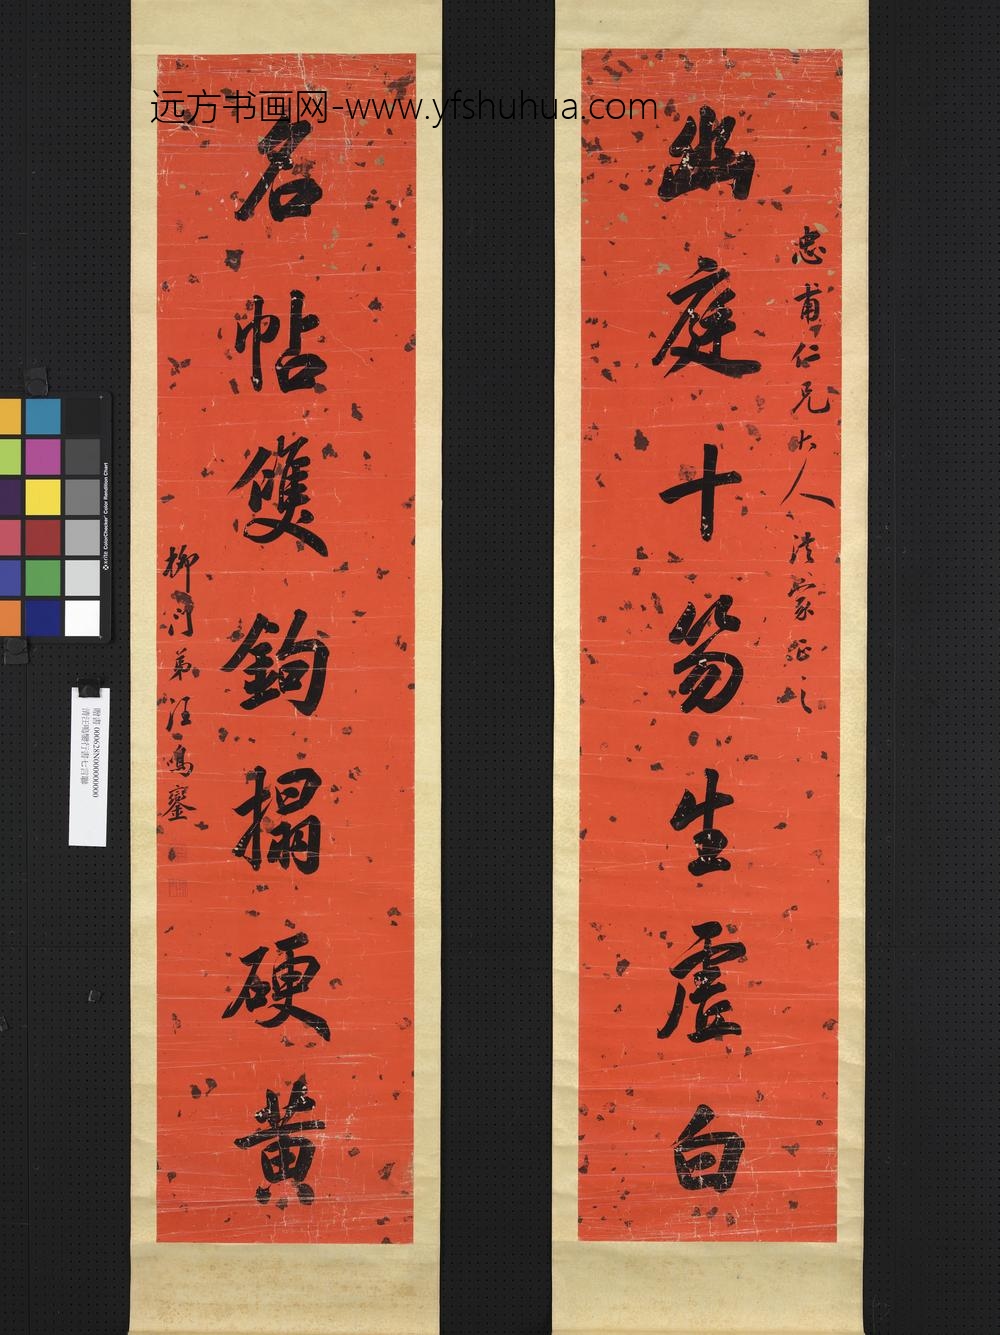 远方书画网-www.yfshuhua.com
幽庭十笏生虛白
忠甫仁兄大人法家正之
名帖雙鉤搨硬黃
柳門弟汪鳴鑾
贈書 000628N000000000
清汪鳴鑾行書七言聯
x-rite ColorChecker Color Rendition Chart